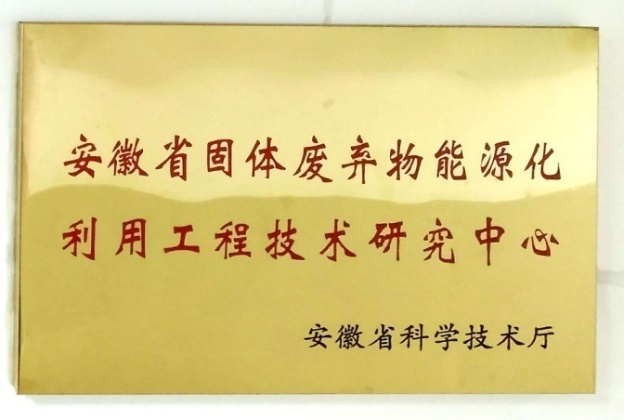 安徽省固体废弃物能源化
利用工程技术研究中心
安徽省科学技术厅